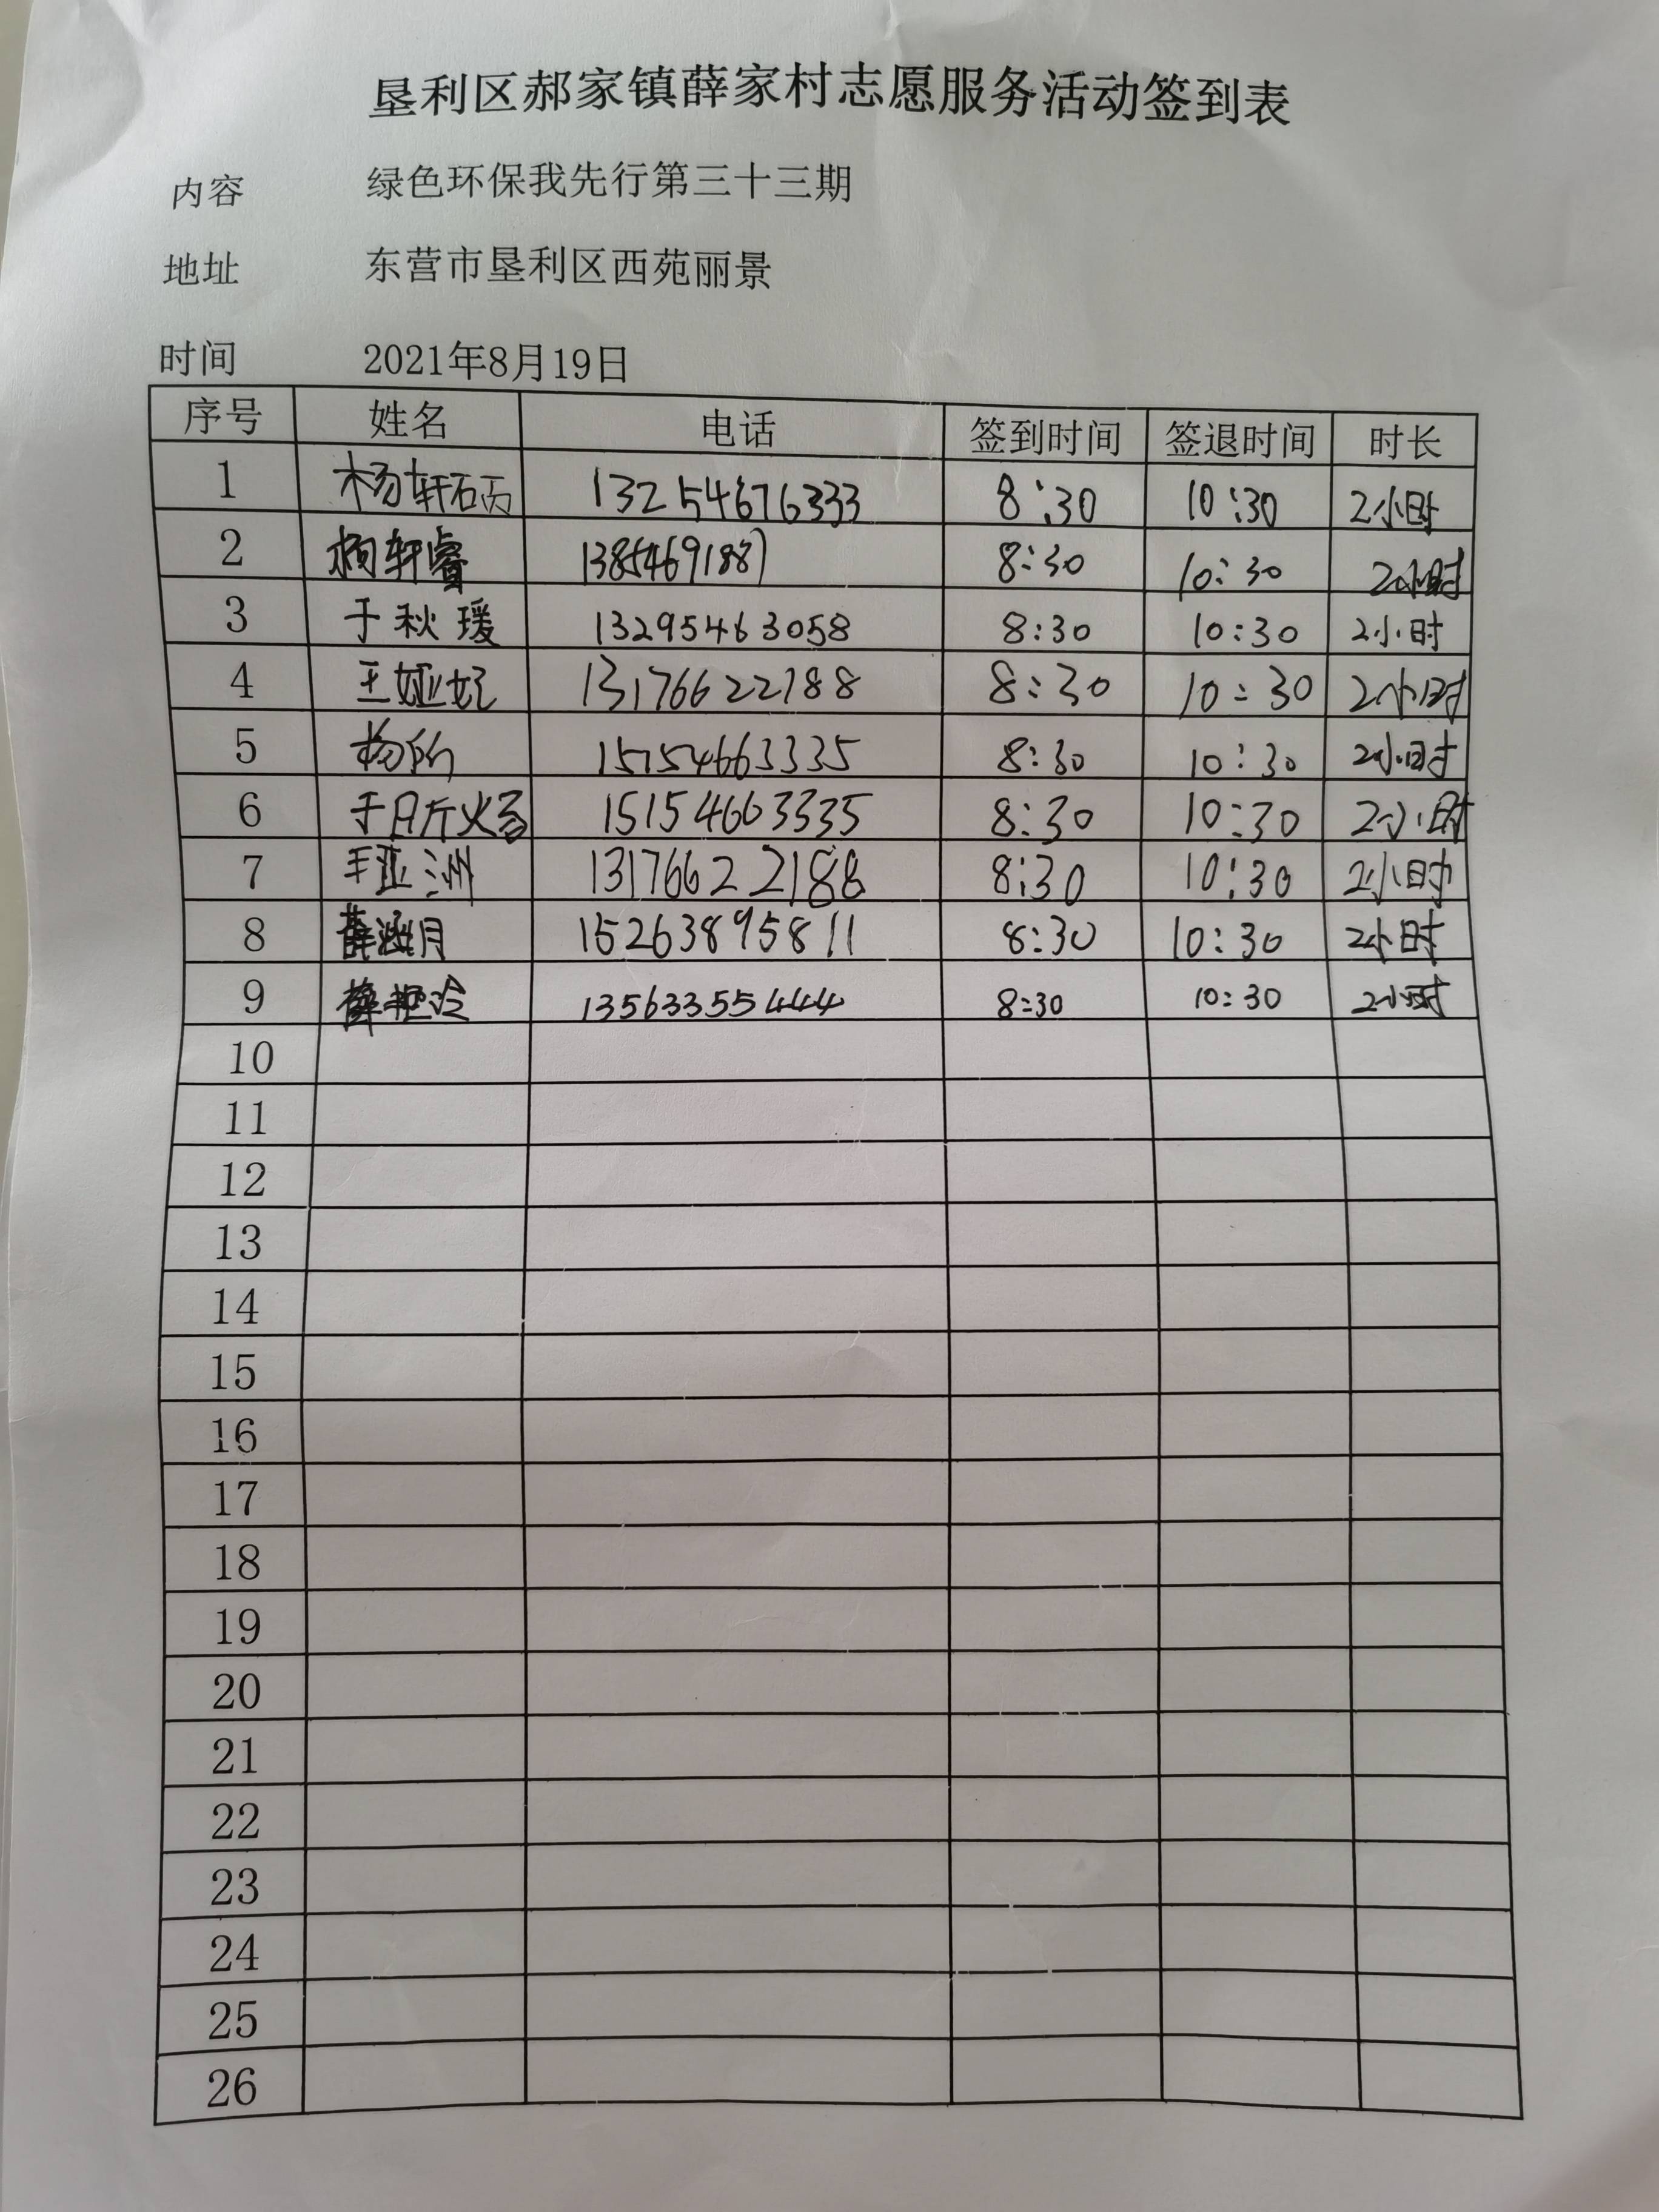 垦利区郝家镇薛家村志愿服务活动签到表
内容 绿色环保我先行第三十三期
地址 东营市垦利区西苑丽景
时间 2021年8月19日
序号 姓名 电话 签到时间 签退时间 时长
1 杨轩硕 13254676333 8:30 10:30 2小时
2 杨轩睿 13854691887 8:30 10:30 2小时
3 于秋瑗 13295463058 8:30 10:30 2小时
4 王娅妃 13176622188 8:30 10:30 2小时
5 15154663335 8:30 10:30 2小时
6 于 15154663335 8:30 10:30 2小时
7 王亚洲 13176622188 8:30 10:30 2小时
8 薛涵月 15263895811 8:30 10:30 2小时
9 薛 13563355444 8:30 10:30 2小时
10
11
12
13
14
15
16
17
18
19
20
21
22
23
24
25
26